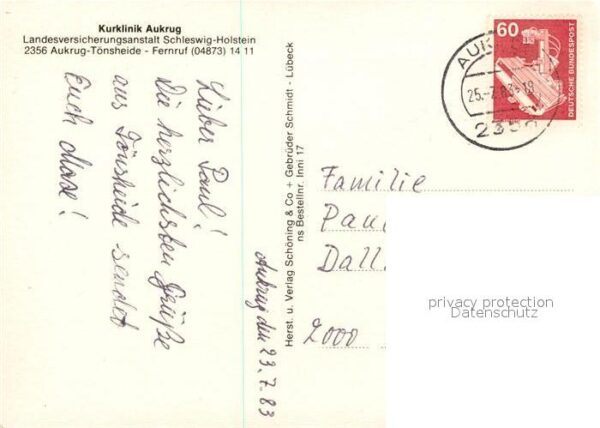 Kurklinik Aukrug
Landesversicherungsanstalt Schleswig-Holstein
2356 Aukrug-Tönsheide - Fernruf (04873) 14 11
Lieber Paul!
Die herzlichsten Grüße
aus Tönsheide sendet
Euch
Aukrug den 23.7.83
Herst. u. Verlag Schöning & Co + Gebrüder Schmidt - Lübeck
ns Bestellnr. Inni 17
60
DEUTSCHE BUNDESPOST
25.-7.83-18
Familie
Pau
Dall
2000
privacy protection
Datenschutz